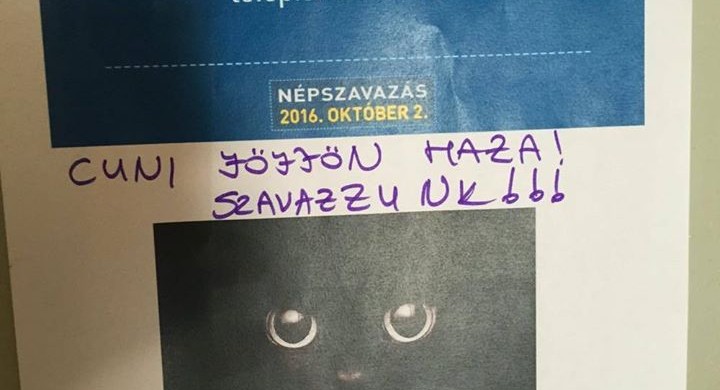 NÉPSZAVAZÁS
2016. OKTÓBER 2.
CUNI JÖJJÖN HAZA!
SZAVAZZUNK!!!